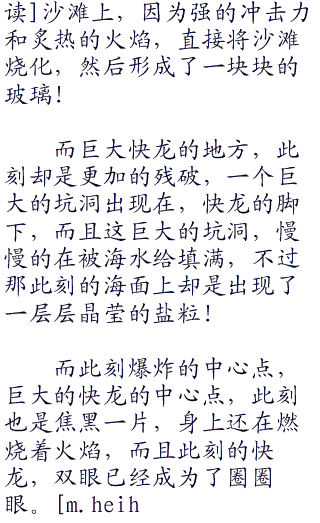 读]沙滩上，因为强的冲击力
和炙热的火焰，直接将沙滩
烧化，然后形成了一块块的
玻璃！
而巨大快龙的地方，此
刻却是更加的残破，一个巨
大的坑洞出现在，快龙的脚
下，而且这巨大的坑洞，慢
慢的在被海水给填满，不过
那此刻的海面上却是出现了
一层层晶莹的盐粒！
而此刻爆炸的中心点，
巨大的快龙的中心点，此刻
也是焦黑一片，身上还在燃
烧着火焰，而且此刻的快
龙，双眼已经成为了圈圈
眼。[m.heih